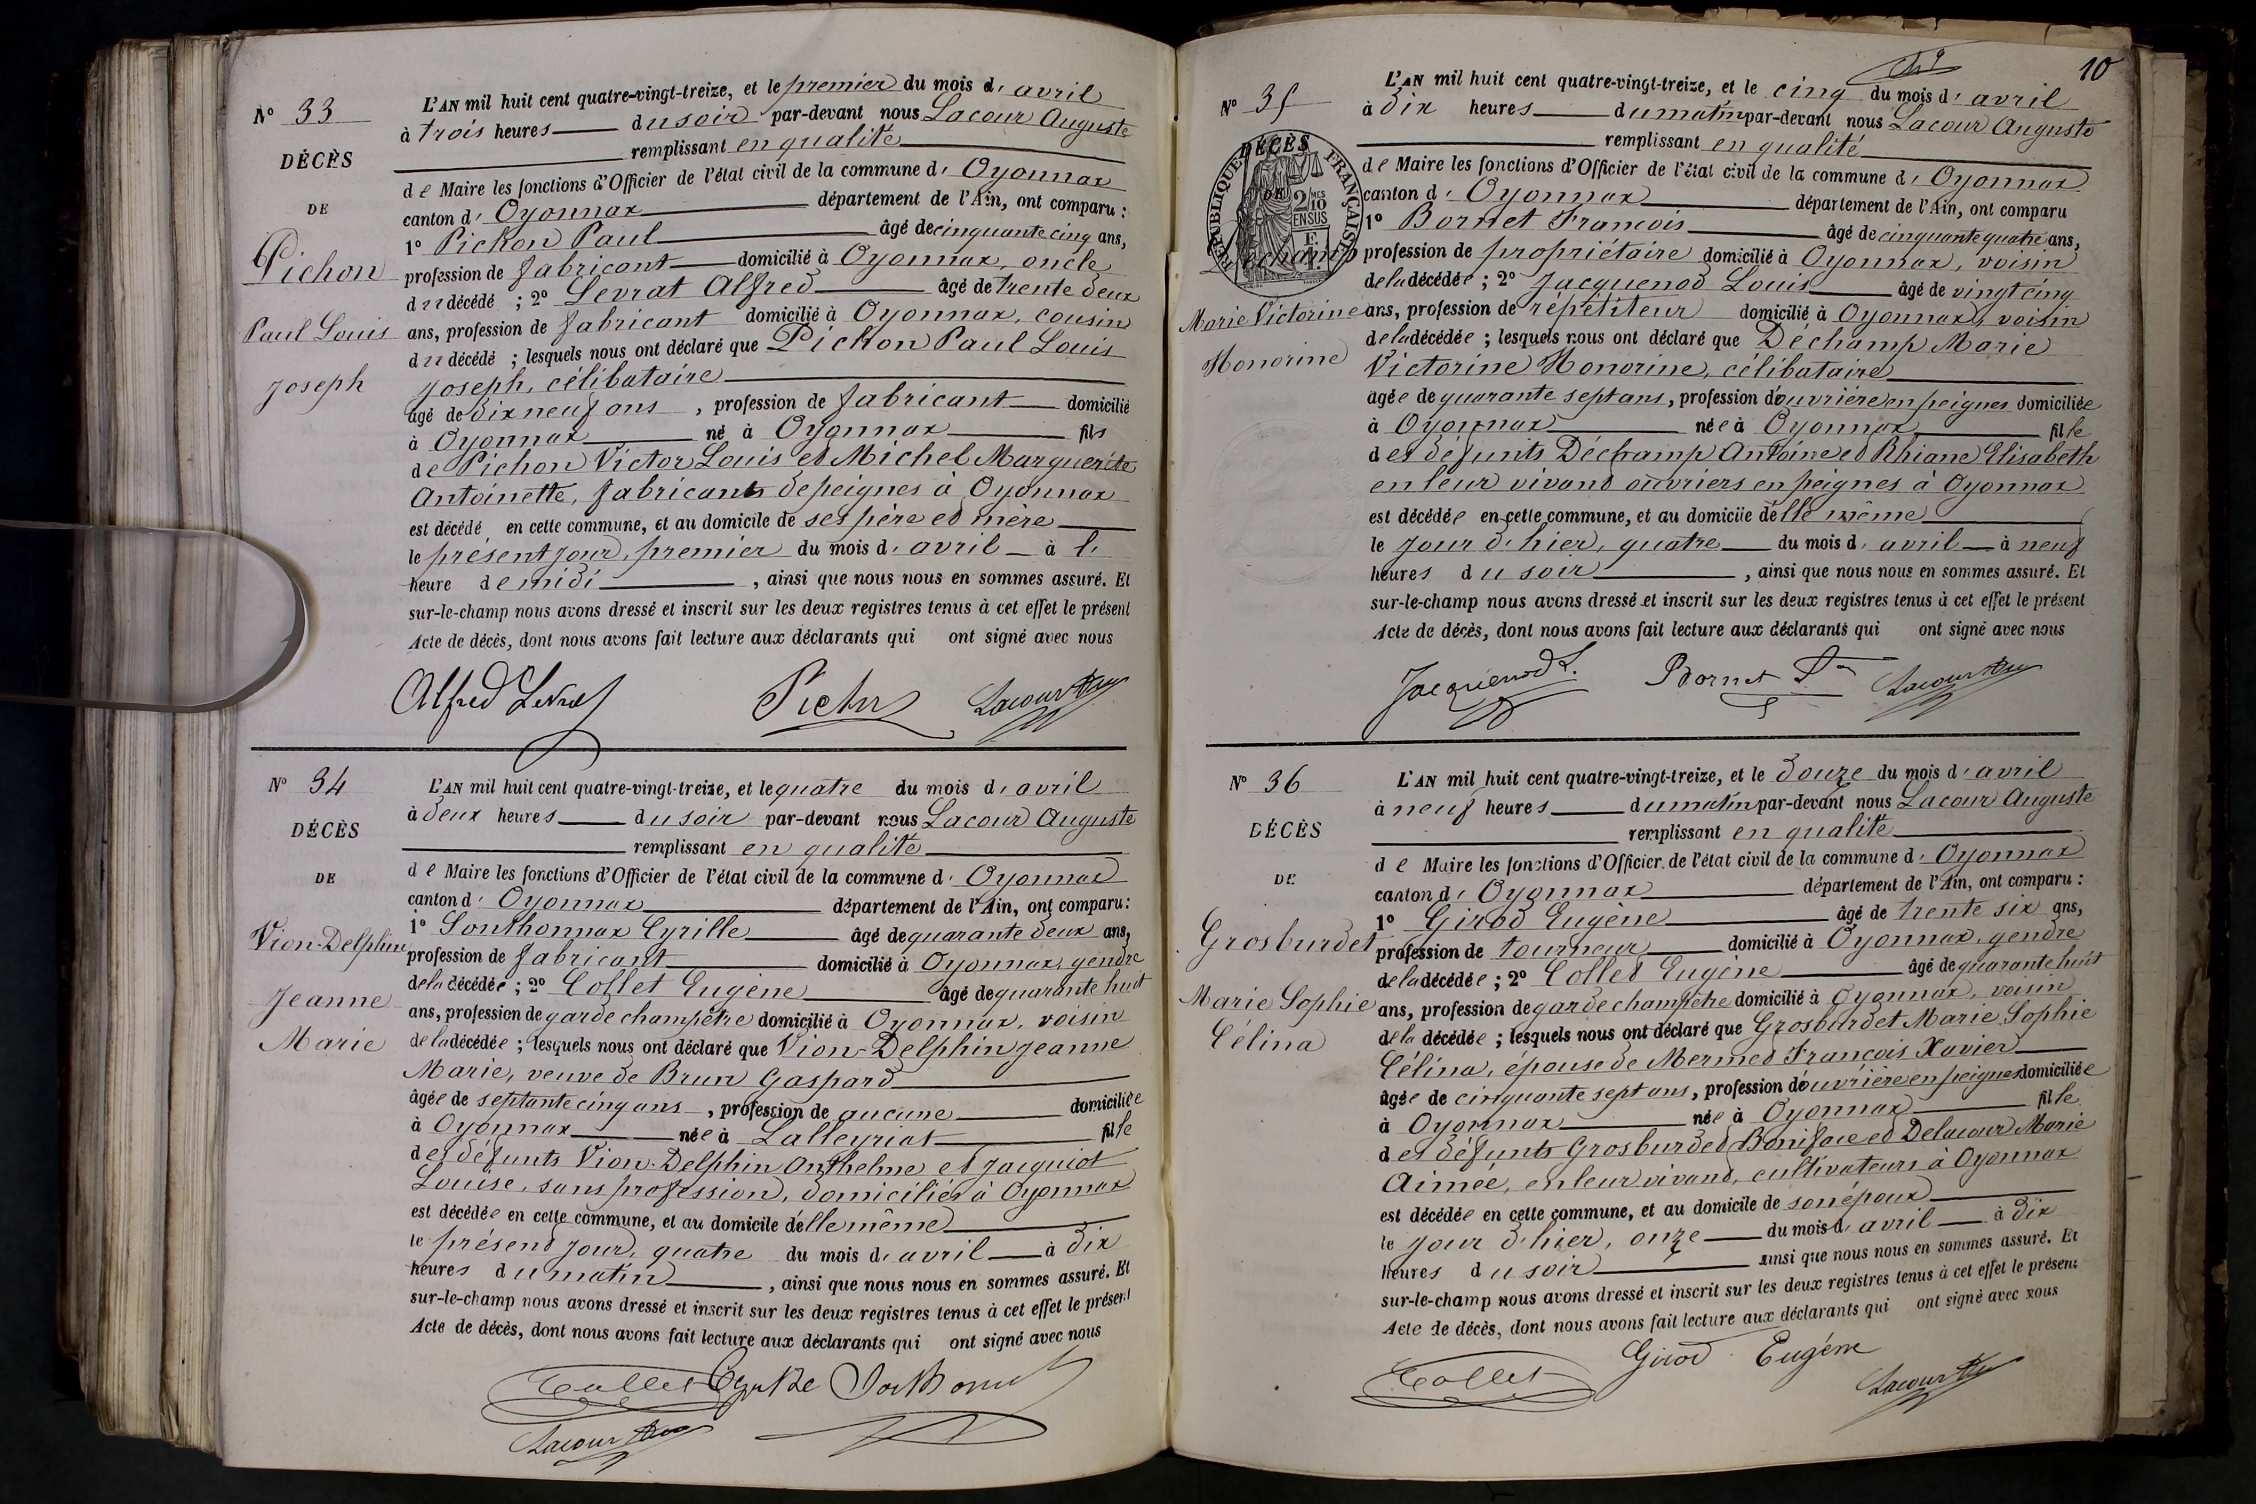 N° 33
DÉCÈS
DE
Pichon
Paul Louis
Joseph
L'AN mil huit cent quatre-vingt-treize, et le premier du mois d'avril
à trois heures du soir par-devant nous Lacour Auguste
remplissant en qualité
de Maire les fonctions d'Officier de l'état civil de la commune d'Oyonnax
canton d'Oyonnax département de l'Ain, ont comparu :
1° Pichon Paul âgé de cinquante cinq ans,
profession de fabricant domicilié à Oyonnax, oncle
du décédé ; 2° Levrat Alfred âgé de trente deux
ans, profession de fabricant domicilié à Oyonnax, cousin
du décédé ; lesquels nous ont déclaré que Pichon Paul Louis
Joseph, célibataire
âgé de dix neuf ans, profession de fabricant domicilié
à Oyonnax né à Oyonnax fils
de Pichon Victor Louis et Michel Marguerite
Antoinette, fabricants de peignes à Oyonnax
est décédé en cette commune, et au domicile de ses père et mère
le présent jour, premier du mois d'avril à l'
heure de midi, ainsi que nous nous en sommes assuré. Et
sur-le-champ nous avons dressé et inscrit sur les deux registres tenus à cet effet le présent
Acte de décès, dont nous avons fait lecture aux déclarants qui ont signé avec nous
Alfred Levrat Pichon Lacour Aug
N° 34
DÉCÈS
DE
Vion-Delphin
Jeanne
Marie
L'AN mil huit cent quatre-vingt-treize, et le quatre du mois d'avril
à deux heures du soir par-devant nous Lacour Auguste
remplissant en qualité
de Maire les fonctions d'Officier de l'état civil de la commune d'Oyonnax
canton d'Oyonnax département de l'Ain, ont comparu :
1° Sonthonnax Cyrille âgé de quarante deux ans,
profession de fabricant domicilié à Oyonnax, gendre
de la décédée ; 2° Collet Eugène âgé de quarante huit
ans, profession de garde champêtre domicilié à Oyonnax, voisin
de la décédée ; lesquels nous ont déclaré que Vion-Delphin Jeanne
Marie, veuve de Brun Gaspard
âgée de septante cinq ans, profession de aucune domiciliée
à Oyonnax née à Lalleyriat fille
des défunts Vion-Delphin Anthelme et Jacquiot
Louise, sans profession, domiciliés à Oyonnax
est décédée en cette commune, et au domicile d'elle même
le présent jour, quatre du mois d'avril à dix
heures du matin, ainsi que nous nous en sommes assuré. Et
sur-le-champ nous avons dressé et inscrit sur les deux registres tenus à cet effet le présent
Acte de décès, dont nous avons fait lecture aux déclarants qui ont signé avec nous
Collet Cyrille Sonthonnax
Lacour Aug
10
N° 35
RÉPUBLIQUE FRANÇAISE
DÉCÈS
DE
2/10 EN SUS
Déchamp
Marie Victorine
Honorine
L'AN mil huit cent quatre-vingt-treize, et le cinq du mois d'avril
à dix heures du matin par-devant nous Lacour Auguste
remplissant en qualité
de Maire les fonctions d'Officier de l'état civil de la commune d'Oyonnax
canton d'Oyonnax département de l'Ain, ont comparu
1° Bornet Francois âgé de cinquante quatre ans,
profession de propriétaire domicilié à Oyonnax, voisin
de la décédée ; 2° Jacquenod Louis âgé de vingt cinq
ans, profession de répétiteur domicilié à Oyonnax, voisin
de la décédée ; lesquels nous ont déclaré que Déchamp Marie
Victorine Honorine, célibataire
agée de quarante sept ans, profession d'ouvrière en peignes domiciliée
à Oyonnax née à Oyonnax fille
des défunts Déchamp Antoine et Rhiane Elisabeth
en leur vivant ouvriers en peignes à Oyonnax
est décédée en cette commune, et au domicile d'elle même
le jour d'hier, quatre du mois d'avril à neuf
heures du soir, ainsi que nous nous en sommes assuré. Et
sur-le-champ nous avons dressé et inscrit sur les deux registres tenus à cet effet le présent
Acte de décès, dont nous avons fait lecture aux déclarants qui ont signé avec nous
Jacquenod L. Bornet Lacour Aug
N° 36
DÉCÈS
DE
Grosburdet
Marie Sophie
Célina
L'AN mil huit cent quatre-vingt-treize, et le douze du mois d'avril
à neuf heures du matin par-devant nous Lacour Auguste
remplissant en qualité
de Maire les fonctions d'Officier de l'état civil de la commune d'Oyonnax
canton d'Oyonnax département de l'Ain, ont comparu :
1° Girod Eugène âgé de trente six ans,
profession de tourneur domicilié à Oyonnax, gendre
de la décédée ; 2° Collet Eugène âgé de quarante huit
ans, profession de garde champêtre domicilié à Oyonnax, voisin
de la décédée ; lesquels nous ont déclaré que Grosburdet Marie Sophie
Célina, épouse de Mermet François Xavier
âgée de cinquante sept ans, profession d'ouvrière en peignes domiciliée
à Oyonnax née à Oyonnax fille
des défunts Grosburdet Boniface et Delacour Marie
Aimée, en leur vivant, cultivateurs à Oyonnax
est décédée en cette commune, et au domicile de son époux
le jour d'hier, onze du mois d'avril à dix
heures du soir ainsi que nous nous en sommes assuré. Et
sur-le-champ nous avons dressé et inscrit sur les deux registres tenus à cet effet le présent
Acte de décès, dont nous avons fait lecture aux déclarants qui ont signé avec nous
Collet Girod Eugène Lacour Aug